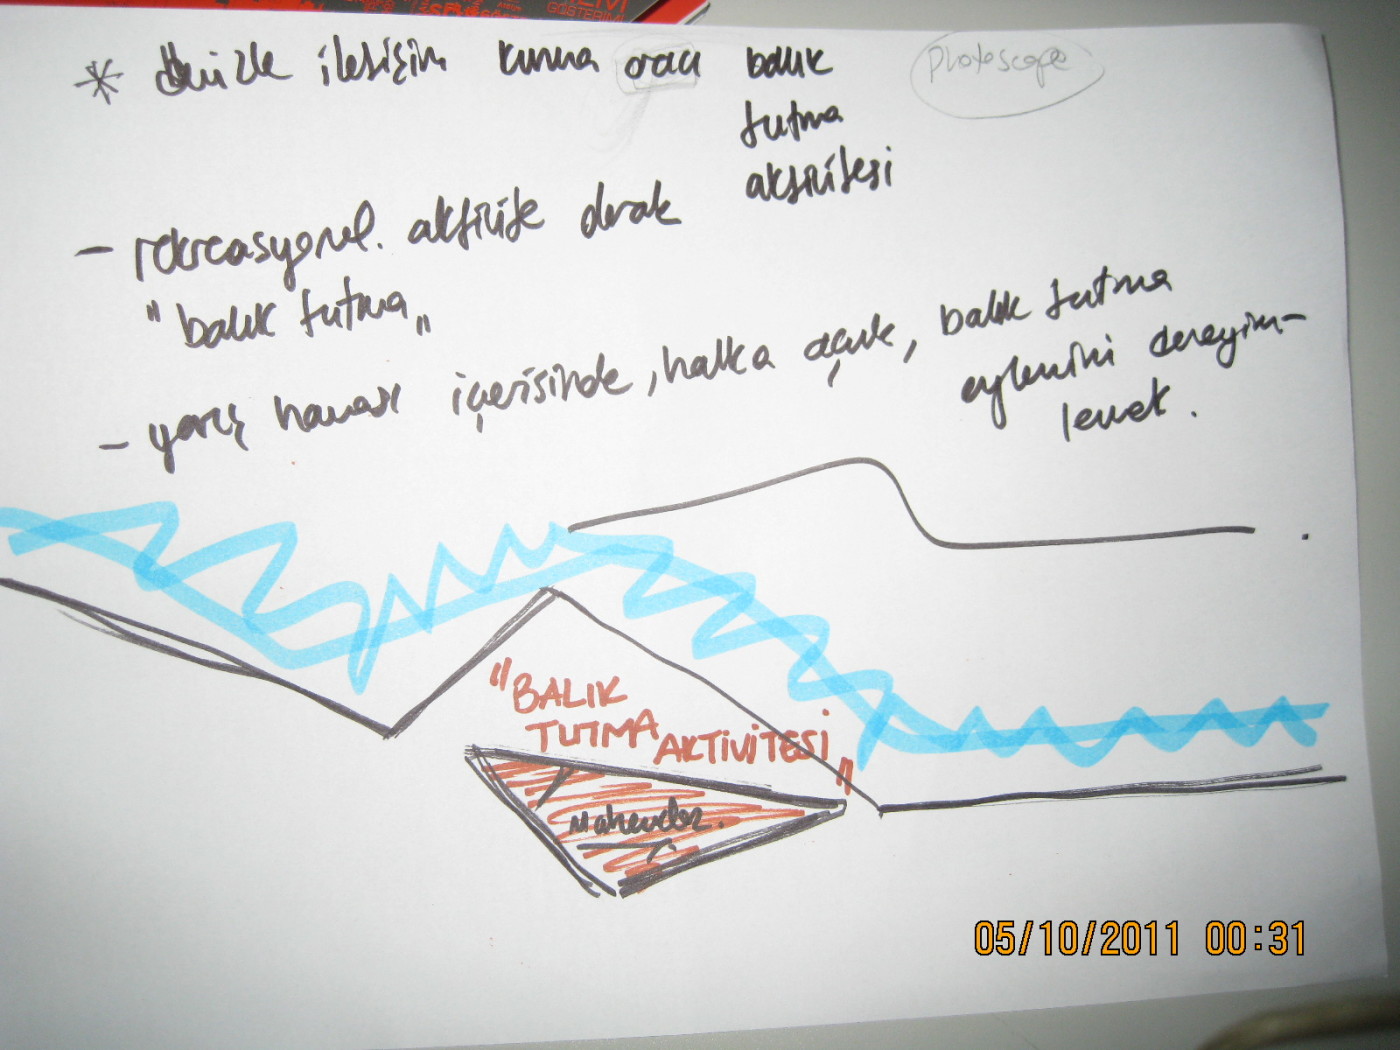 * denizle iletişim kurma aracı balık
tutma
aktivitesi
Photoscape
- rekreasyonel. aktivite olarak
"balık tutma"
- yarış havası içerisinde, halka açık, balık tutma
eylemini deneyim-
lemek.
"BALIK
TUTMA AKTİVİTESİ"
05/10/2011 00:31